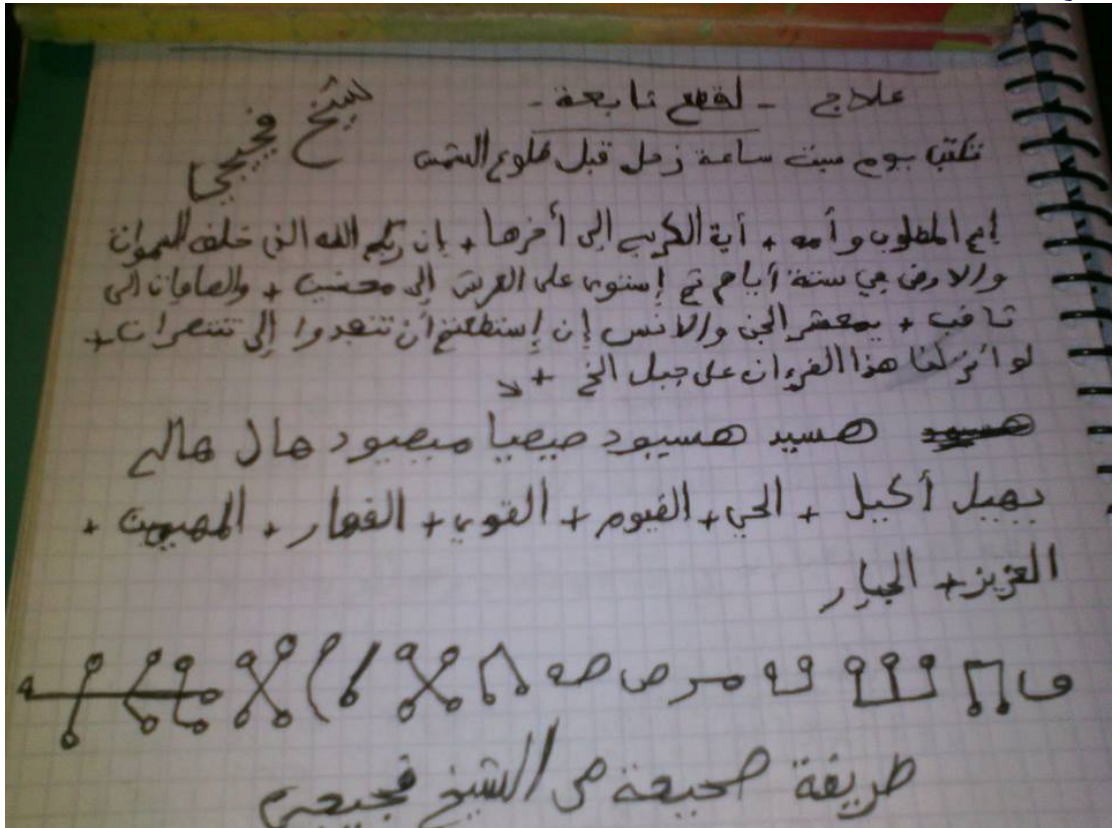 علاج - لقطع تابعة -
شيخ فجيجي
تكتب يوم سبت ساعة زحل قبل طلوع الشمس
إسم المطلوب وأمه + أية الكرسي إلى أخرها + إن ربكم الله الذي خلق السموات
والارض في ستة أيام ثم إستوى على العرش إلى محسنين + والصافات إلى
ثاقب + يمعشر الجن والانس إن إستطعتم أن تنفدوا إلى تنتصران +
لو أنزلنا هذا القرءان على جبل الخ +
هسيد هسيود صيصيا ميصود هال هالي
بهيل أكيل + الحي + القيوم + القوي + القهار + المهيمن +
العزيز + الجبار
طريقة صحيحة من الشيخ فجيجي